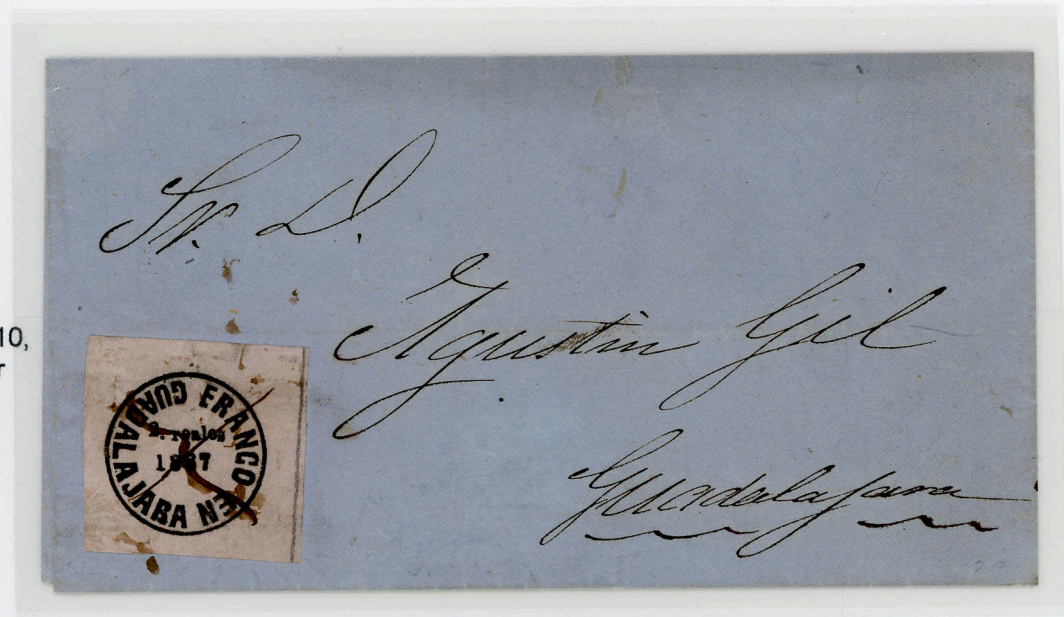 10,
r
Sr. D.
Agustin Gil
Guadalajara
FRANCO EN GUADALAJARA
2. reales
1867